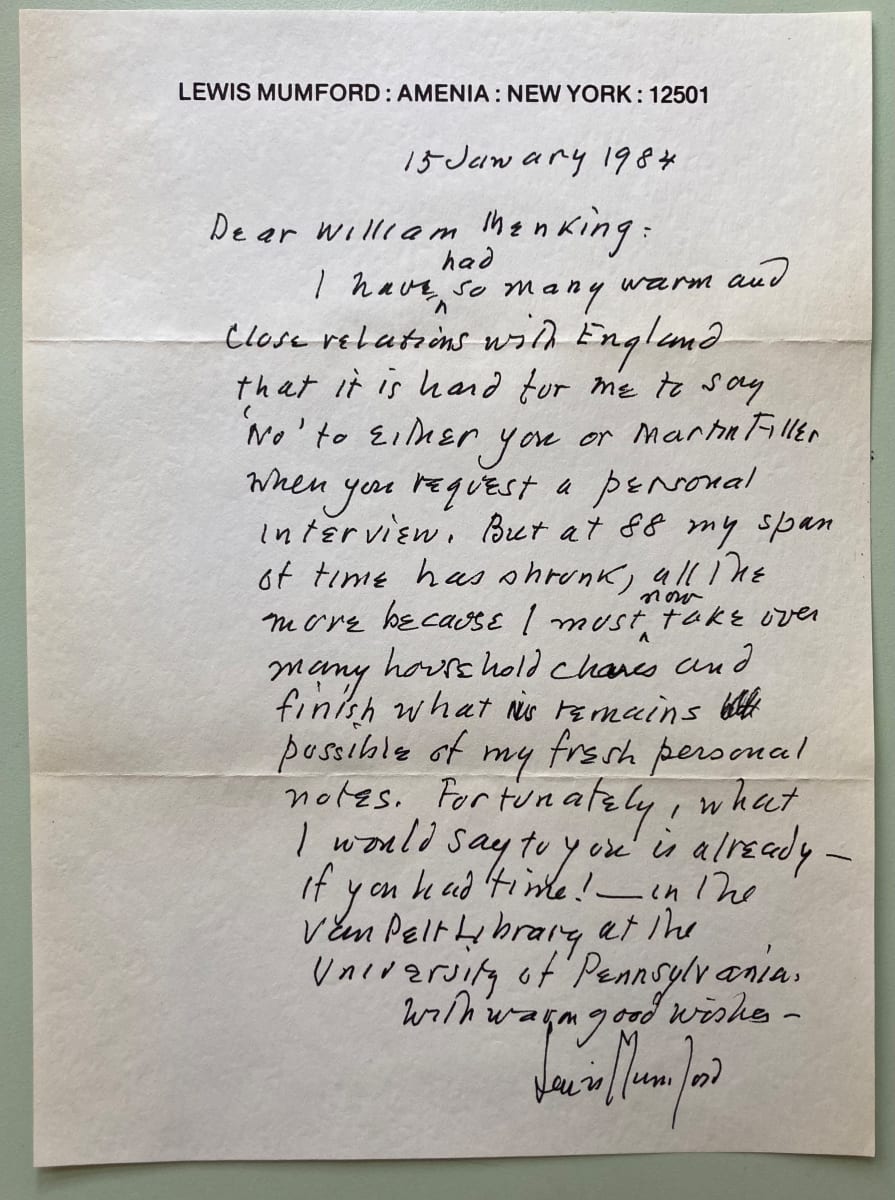 LEWIS MUMFORD : AMENIA : NEW YORK : 12501
15 January 1984
Dear William Menking:
had
I have so many warm and
close relations with England
that it is hard for me to say
'No' to either you or Martin Filler
when you request a personal
interview. But at 88 my span
of time has shrunk, all the
now
more because I must take over
many household chores and
finish what remains
possible of my fresh personal
notes. Fortunately, what
I would say to you is already —
if you had time! — in the
Van Pelt Library at the
University of Pennsylvania.
With warm good wishes –
Lewis Mumford